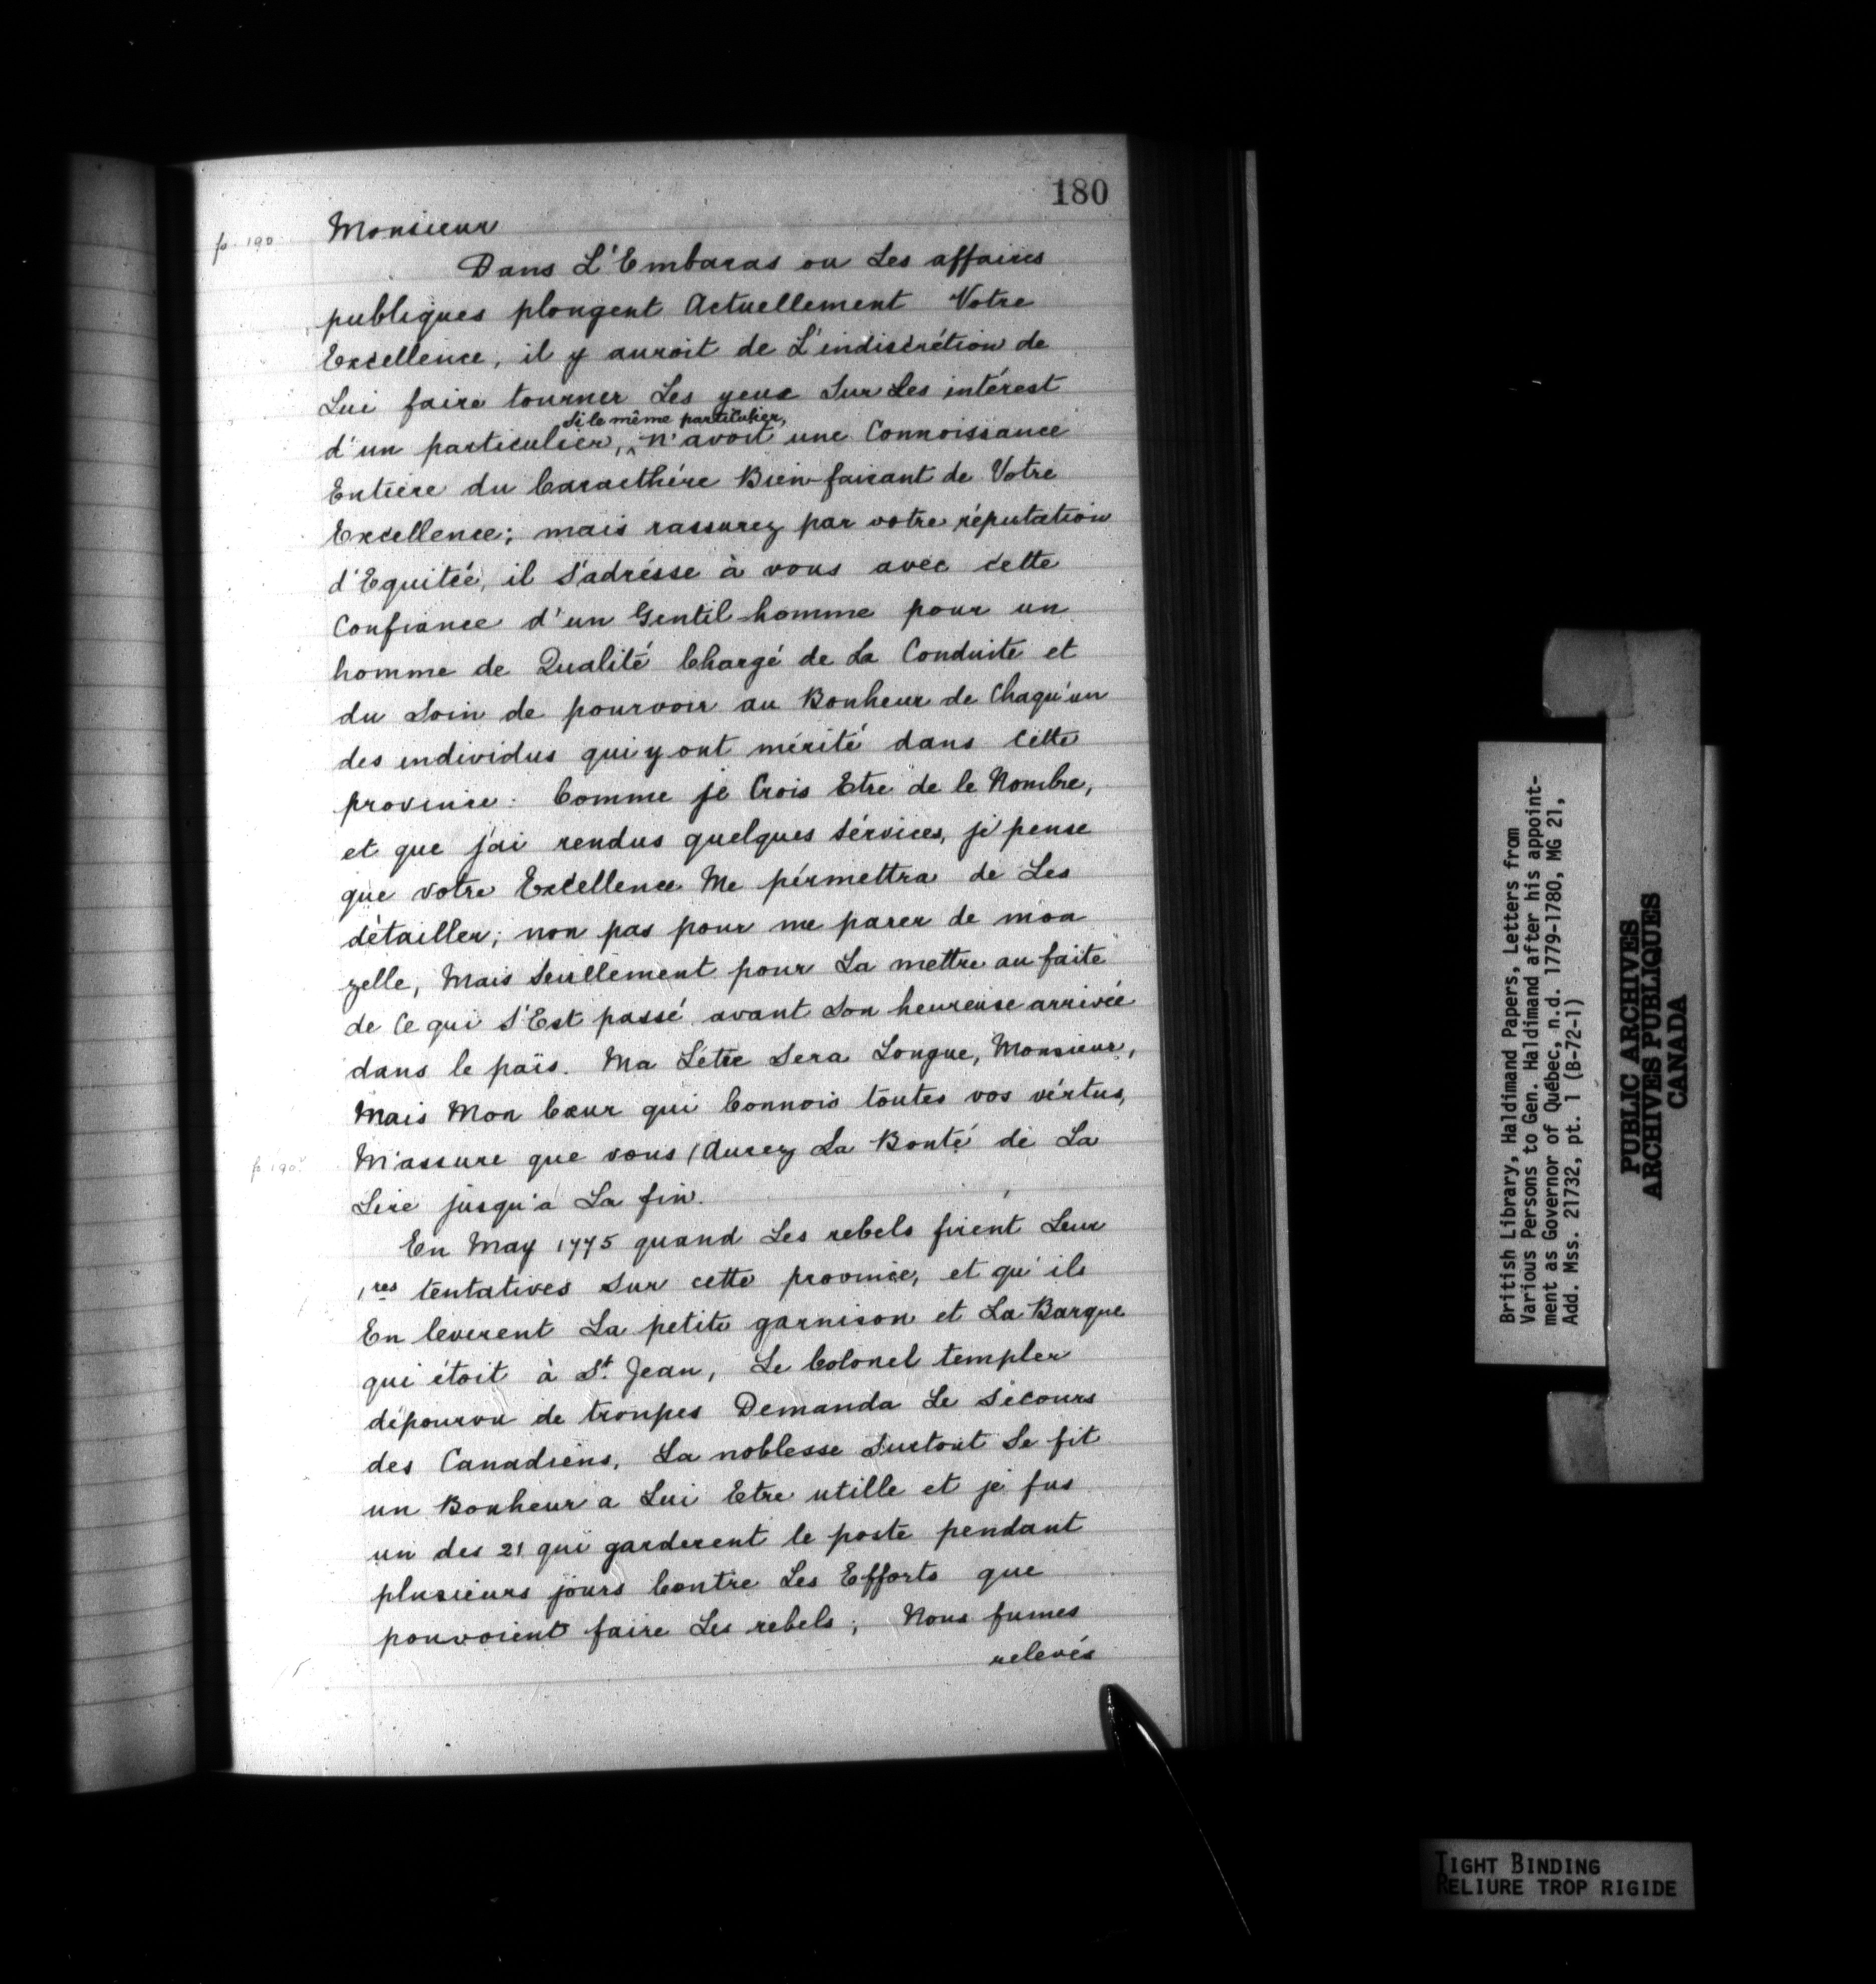 180
p. 190
Monsieur
Dans L'Embaras ou Les affaires
publiques plongent Actuellement Votre
Excellence, il y auroit de L'indiscrétion de
Lui faire tourner Les yeux Sur Les intérest
Si le même particulier,
d'un particulier, ^ n'avoit une Connoissance
Entiere du Caracthére Bien-faisant de Votre
Excellence; mais rassurez par votre réputation
d'Equitéé, il S'adrésse à vous avec cette
Confiance d'un Gentil-homme pour un
homme de Qualité Chargé de La Conduite et
du Soin de pourvoir au Bonheur de Chaqu'un
des individus qui y ont mérité dans Cette
province. Comme je Crois Etre de le Nombre,
et que j'ai rendus quelques Sérvices, je pense
que votre Excellence Me pérmettra de Les
détailler; non pas pour me parer de mon
zelle, Mais Seullement pour La mettre au faite
de Ce qui S'Est passé avant Son heureuse arrivée
dans le païs. Ma Létre Sera Longue, Monsieur,
Mais Mon Cœur qui Connois toutes vos vértus,
p 190v
M'assure que vous / Aurez La Bonté de La
Lire jusqu'a La fin.
En May 1775 quand Les rebels firent Leur
1res tentatives Sur cette province, et qu'ils
En leverent La petite garnison et La Barque
qui étoit à St. Jean, Le Colonel templer
dépourvu de troupes Demanda Le Sécours
des Canadiens, La noblesse Surtout Se fit
un Bonheur a Lui Etre utille et je fus
un des 21 qui garderent le poste pendant
plusieurs jours Contre Les Efforts que
pouvoient faire Les rebels; Nous fumes
relevés
British Library, Haldimand Papers, Letters from
Various Persons to Gen. Haldimand after his appoint-
ment as Governor of Québec, n.d. 1779-1780, MG 21,
Add. Mss. 21732, pt. 1 (B-72-1)
PUBLIC ARCHIVES
ARCHIVES PUBLIQUES
CANADA
TIGHT BINDING
RELIURE TROP RIGIDE